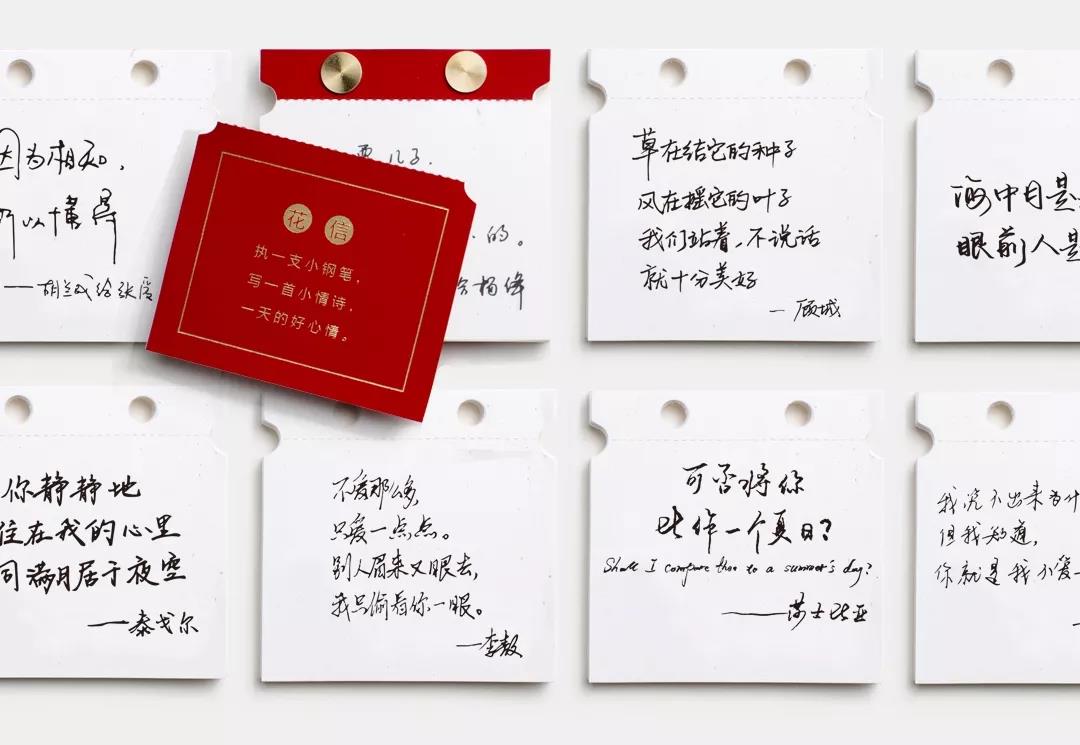 因为相知，
所以懂得
——胡兰成给张爱
的。
杨绛
花信
执一支小钢笔，
写一首小情诗，
一天的好心情。
草在结它的种子
风在摇它的叶子
我们站着，不说话
就十分美好
— 顾城
海中月是
眼前人是
你静静地
住在我的心里
同满月居于夜空
——泰戈尔
不爱那么多，
只爱一点点。
别人眉来又眼去，
我只偷看你一眼。
—李敖
可否将你
比作一个夏日？
Shall I compare thee to a summer's day?
——莎士比亚
我说不出来为什
但我知道，
你就是我不爱